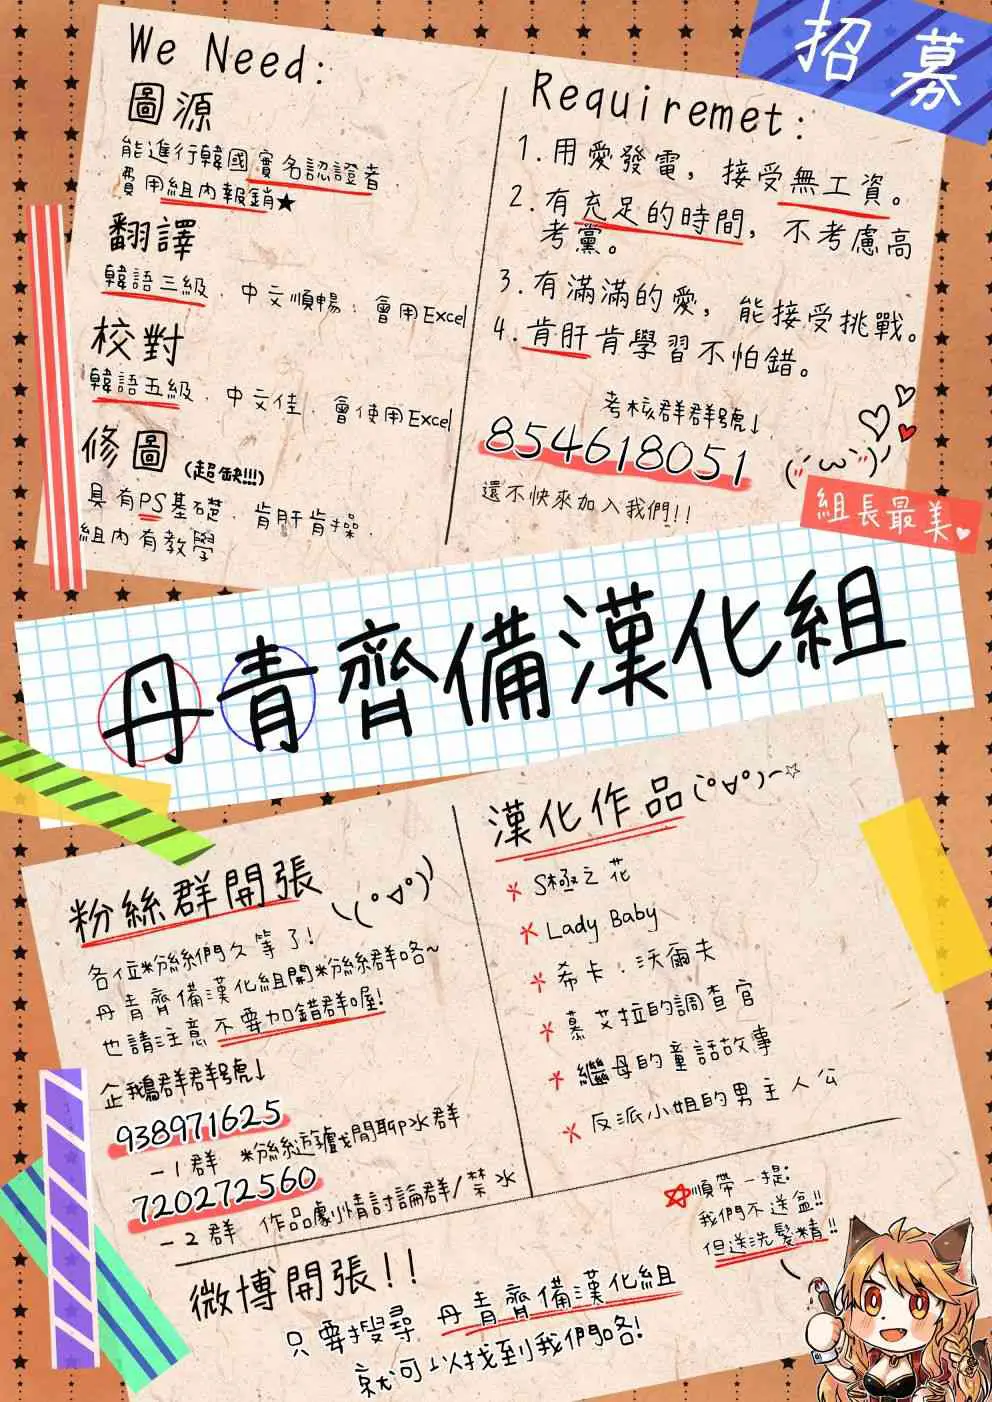 招募
We Need:
圖源
能進行韓國實名認證者
費用組內報銷★
翻譯
韓語三級．中文順暢．會用Excel
校對
韓語五級．中文佳．會使用Excel
修圖(超缺!!!)
具有PS基礎．肯肝肯操．
組內有教學
Requiremet:
1.用愛發電，接受無工資。
2.有充足的時間，不考慮高
考黨。
3.有滿滿的愛，能接受挑戰。
4.肯肝肯學習不怕錯。
考核群群號↓
854618051
還不快來加入我們!!
組長最美
丹青齊備漢化組
粉絲群開張
各位粉絲們久等了!
丹青齊備漢化組開粉絲群咯~
也請注意不要加錯群喔!
企鵝群群號↓
938971625
-1群 粉絲追坑閒聊水群
720272560
-2群 作品劇情討論群/禁水
漢化作品
S極之花
Lady Baby
希卡．沃爾夫
慕艾拉的調查官
繼母的童話故事
反派小姐的男主人公
順帶一提:
我們不送盆!!
但送洗髮精!!
微博開張!!
只要搜尋 丹青齊備漢化組
就可以找到我們咯!